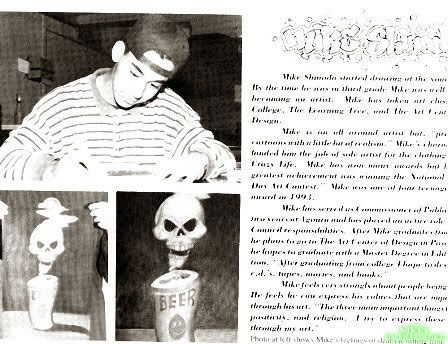 Mike Shinoda started drawing at the
By the time he was in third grade Mike was well
becoming an artist. Mike has taken art
College, The Learning Tree, and The Art
Design.
Mike is an all around artist but,
cartoons with a little bit of realism." Mike's
landed him the job of sole artist for the clothing
Crazy Life. Mike has won many awards but
greatest achievement was winning the National
Day Art Contest." Mike was one of four
award in 1993.
Mike has served as Commissioner of
two years at Agoura and has played an active role
Council responsibilities. After Mike graduates
he plans to go to The Art Center of Design in
he hopes to graduate with a Master Degree in
"After graduating from college I hope to
c.d.'s, tapes, movies, and books."
Mike feels very strongly about people being
He feels he can express his values that are
through his art. "The three main important things
positivity, and religion. I try to express these
through my art."
Photo at left shows Mike's feelings of death resulting
BEER
BEER